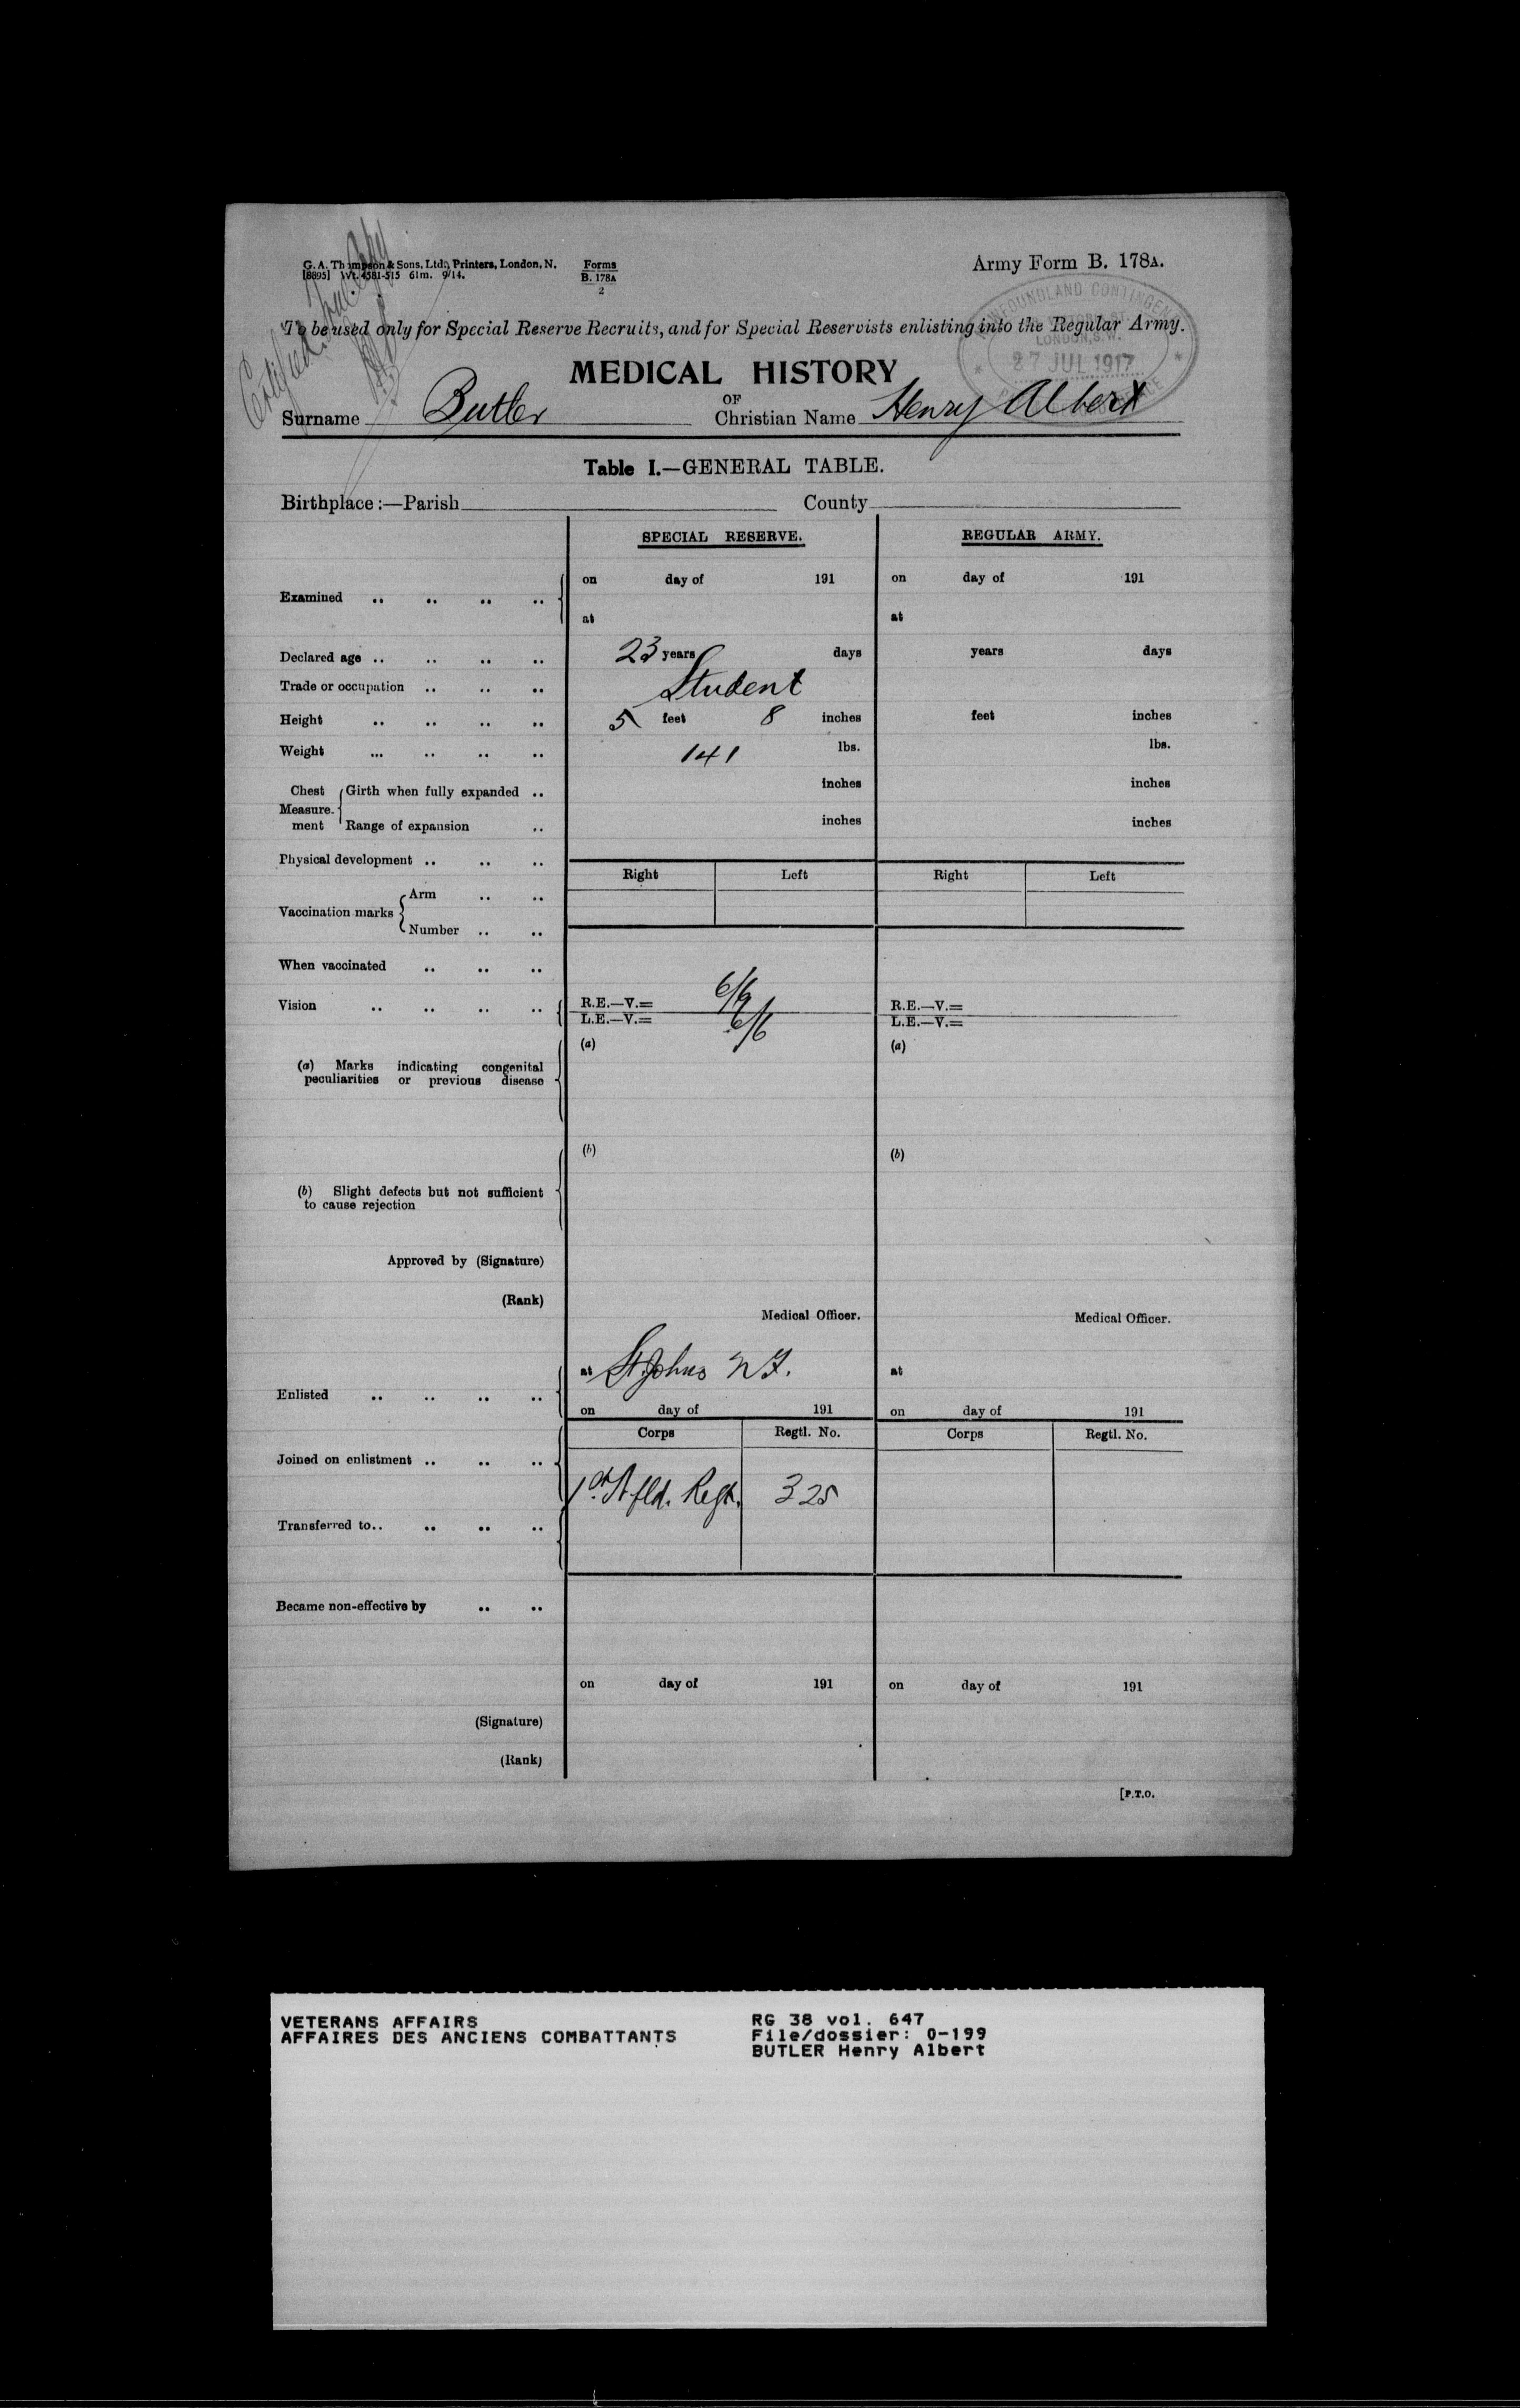 Certified true copy
G. A. Thompson & Sons, Ltd., Printers, London, N.
[8895] Wt. 4581-515 61m. 9/14.
Forms
B. 178A
2
Army Form B. 178A.
NEWFOUNDLAND CONTINGENT
LONDON, S.W.
27 JUL 1917
To be used only for Special Reserve Recruits, and for Special Reservists enlisting into the Regular Army.
MEDICAL HISTORY
OF
Surname Butler Christian Name Henry Albert
Table I.—GENERAL TABLE.
Birthplace:—Parish County
SPECIAL RESERVE. REGULAR ARMY.
on day of 191 on day of 191
Examined .. .. .. ..
at at
Declared age .. .. .. .. 23 years days years days
Trade or occupation .. .. .. Student
Height .. .. .. .. 5 feet 8 inches feet inches
Weight ... .. .. .. 141 lbs. lbs.
Chest Measure-ment Girth when fully expanded .. inches inches
Range of expansion .. inches inches
Physical development .. .. ..
Right Left Right Left
Vaccination marks Arm .. ..
Number .. ..
When vaccinated .. .. ..
Vision .. .. .. .. R.E.—V.= 6/9 R.E.—V.=
L.E.—V.= 6/6 L.E.—V.=
(a) (a)
(a) Marks indicating congenital
peculiarities or previous disease
(b) (b)
(b) Slight defects but not sufficient
to cause rejection
Approved by (Signature)
(Rank)
Medical Officer. Medical Officer.
at St. Johns NF. at
Enlisted .. .. .. ..
on day of 191 on day of 191
Corps Regtl. No. Corps Regtl. No.
Joined on enlistment .. .. ..
1st Nfld. Regt. 325
Transferred to.. .. .. ..
Became non-effective by .. ..
on day of 191 on day of 191
(Signature)
(Rank)
[P.T.O.
VETERANS AFFAIRS
AFFAIRES DES ANCIENS COMBATTANTS
RG 38 vol. 647
File/dossier: 0-199
BUTLER Henry Albert